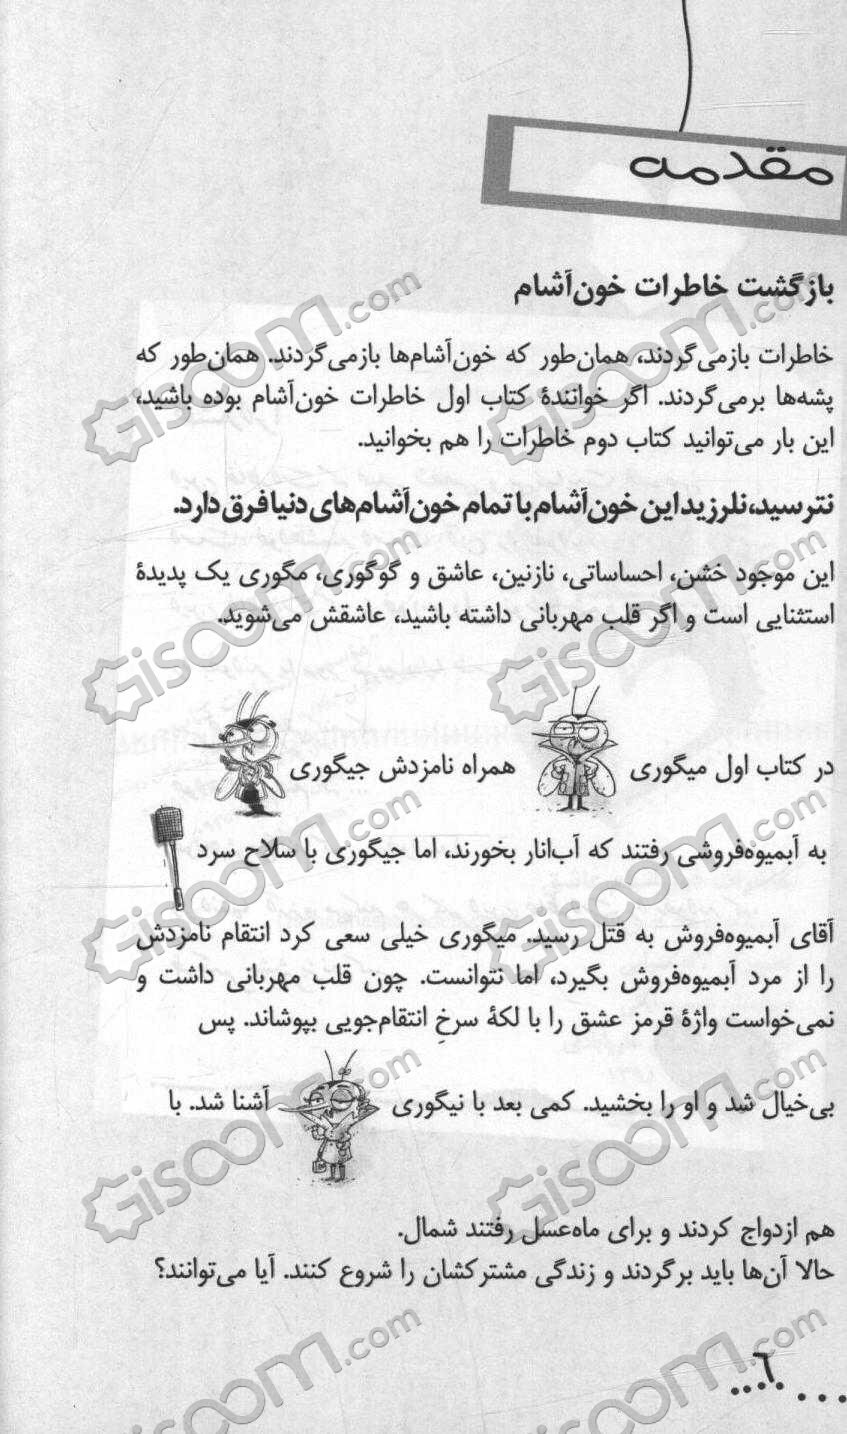 مقدمه
بازگشت خاطرات خون‌آشام
خاطرات بازمی‌گردند، همان‌طور که خون‌آشام‌ها بازمی‌گردند. همان‌طور که
پشه‌ها برمی‌گردند. اگر خوانندهٔ کتاب اول خاطرات خون‌آشام بوده باشید،
این بار می‌توانید کتاب دوم خاطرات را هم بخوانید.
نترسید، نلرزید این خون‌آشام با تمام خون‌آشام‌های دنیا فرق دارد.
این موجود خشن، احساساتی، نازنین، عاشق و گوگوری، مگوری یک پدیدهٔ
استثنایی است و اگر قلب مهربانی داشته باشید، عاشقش می‌شوید.
در کتاب اول میگوری همراه نامزدش جیگوری
به آبمیوه‌فروشی رفتند که آب‌انار بخورند، اما جیگوری با سلاح سرد
آقای آبمیوه‌فروش به قتل رسید. میگوری خیلی سعی کرد انتقام نامزدش
را از مرد آبمیوه‌فروش بگیرد، اما نتوانست. چون قلب مهربانی داشت و
نمی‌خواست واژهٔ قرمز عشق را با لکهٔ سرخِ انتقام‌جویی بپوشاند. پس
بی‌خیال شد و او را بخشید. کمی بعد با نیگوری آشنا شد. با
هم ازدواج کردند و برای ماه‌عسل رفتند شمال.
حالا آن‌ها باید برگردند و زندگی مشترکشان را شروع کنند. آیا می‌توانند؟
۶
Gisoom.com
Gisoom.com
Gisoom.com
Gisoom.com
Gisoom.com
Gisoom.com
Gisoom.com
Gisoom.com
Gisoom.com
Gisoom.com